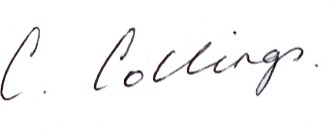 C. Collings.